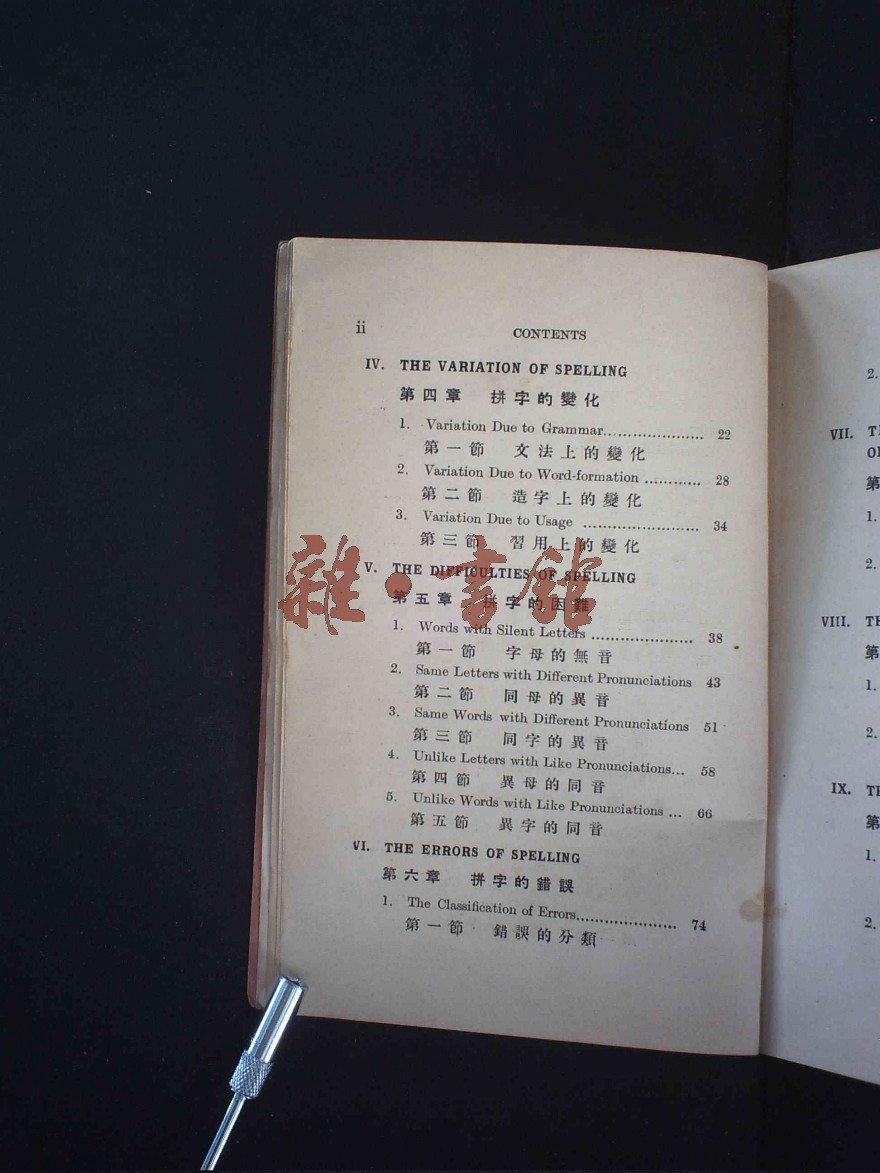 ii
CONTENTS
IV. THE VARIATION OF SPELLING
第四章 拼字的變化
1. Variation Due to Grammar.................... 22
第一節 文法上的變化
2. Variation Due to Word-formation ............ 28
第二節 造字上的變化
3. Variation Due to Usage ........................ 34
第三節 習用上的變化
V. THE DIFFICULTIES OF SPELLING
第五章 拼字的困難
1. Words with Silent Letters ..................... 38
第一節 字母的無音
2. Same Letters with Different Pronunciations 43
第二節 同母的異音
3. Same Words with Different Pronunciations 51
第三節 同字的異音
4. Unlike Letters with Like Pronunciations... 58
第四節 異母的同音
5. Unlike Words with Like Pronunciations ... 66
第五節 異字的同音
VI. THE ERRORS OF SPELLING
第六章 拼字的錯誤
1. The Classification of Errors..................... 74
第一節 錯誤的分類
雜·書館
2.
VII.
第
1.
2.
VIII.
第
1.
2.
IX.
第
1.
2.